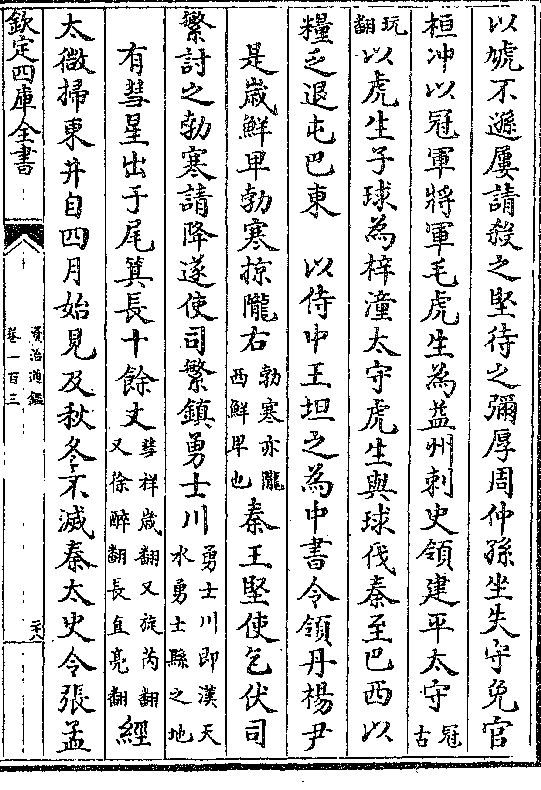 以虓不遜屢請殺之堅待之彌厚周仲孫坐失守免官
桓冲以冠軍將軍毛虎生為益州刺史領建平太守冠古
玩翻以虎生子球為梓潼太守虎生與球伐秦至巴西以
糧乏退屯巴東　以侍中王坦之為中書令領丹楊尹
是歲鮮卑勃寒掠隴右勃寒亦隴西鮮卑也秦王堅使乞伏司
繁討之勃寒請降遂使司繁鎮勇士川勇士川即漢天水勇士縣之地
有彗星出于尾箕長十餘丈彗祥歲翻又旋芮翻又徐醉翻長直亮翻經
太微掃東井自四月始見及秋冬不滅秦太史令張孟
欽定四庫全書
資治通鑑
卷一百三
六